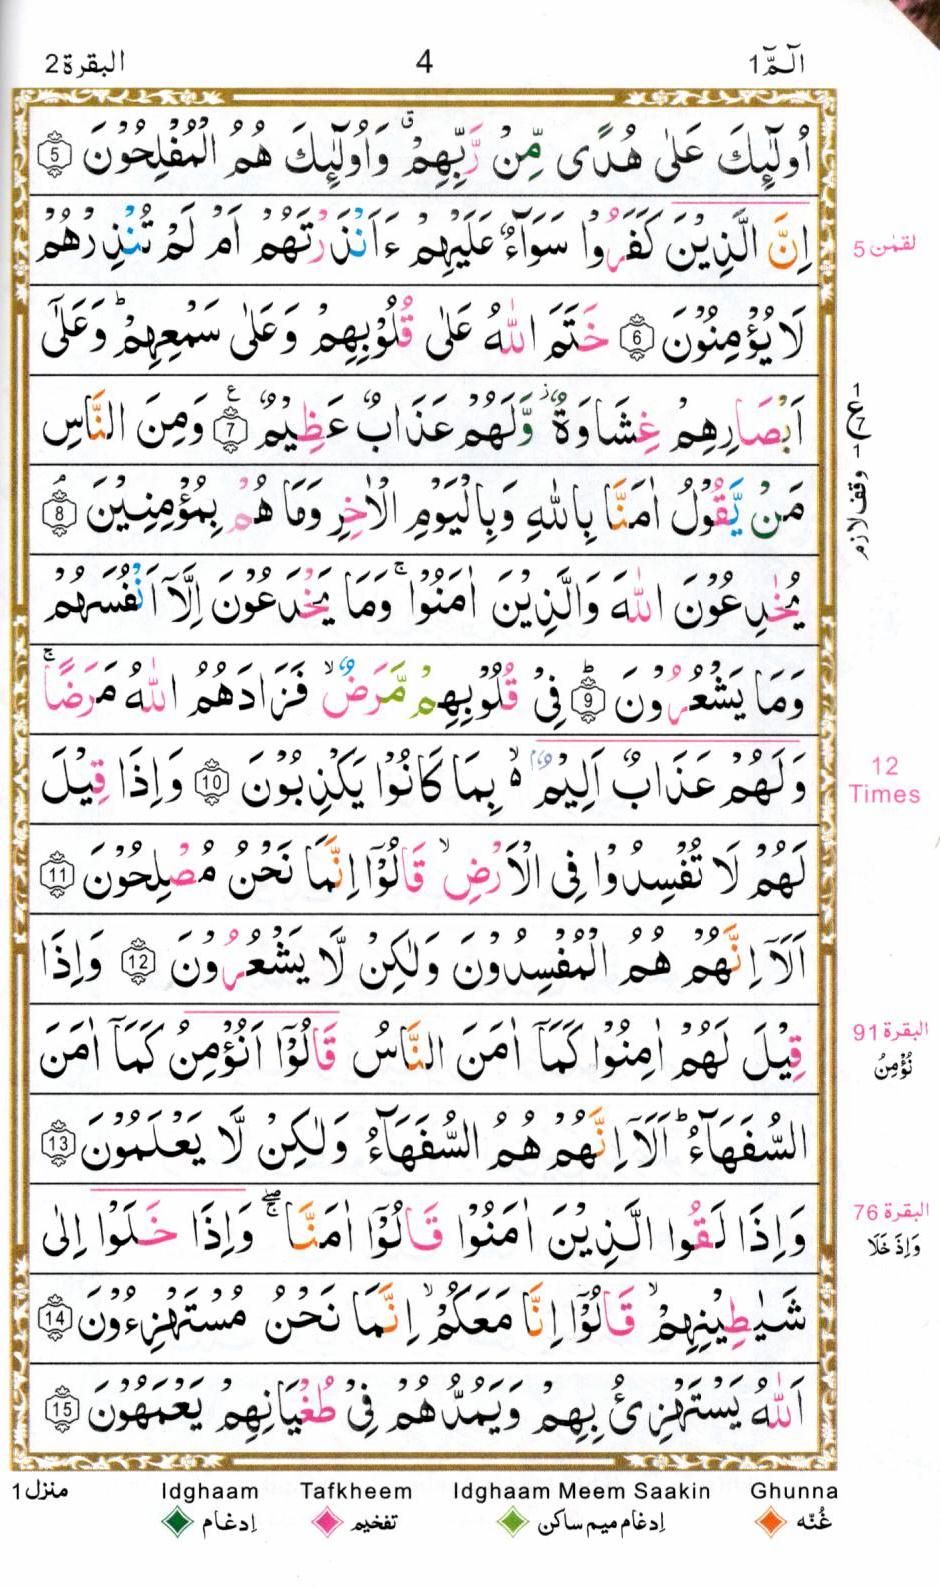 البقرة 2
4
الٓمّٓ 1
اُولٰٓئِكَ عَلٰى هُدًى مِّنْ رَّبِّهِمْ ۗ وَاُولٰٓئِكَ هُمُ الْمُفْلِحُوْنَ 5
اِنَّ الَّذِيْنَ كَفَرُوْا سَوَآءٌ عَلَيْهِمْ ءَاَنْذَرْتَهُمْ اَمْ لَمْ تُنْذِرْهُمْ
لقمٰن 5
لَا يُؤْمِنُوْنَ 6 خَتَمَ اللّٰهُ عَلٰى قُلُوْبِهِمْ وَعَلٰى سَمْعِهِمْ ؕ وَعَلٰٓى
اَبْصَارِهِمْ غِشَاوَةٌ ؗ وَّلَهُمْ عَذَابٌ عَظِيْمٌ 7 وَمِنَ النَّاسِ
ع
مَنْ يَّقُوْلُ اٰمَنَّا بِاللّٰهِ وَبِالْيَوْمِ الْاٰخِرِ وَمَا هُمْ بِمُؤْمِنِيْنَ 8
وقف لازم
يُخٰدِعُوْنَ اللّٰهَ وَالَّذِيْنَ اٰمَنُوْا ۚ وَمَا يَخْدَعُوْنَ اِلَّآ اَنْفُسَهُمْ
وَمَا يَشْعُرُوْنَ ؕ 9 فِيْ قُلُوْبِهِمْ مَّرَضٌ ۙ فَزَادَهُمُ اللّٰهُ مَرَضًا ۚ
وَلَهُمْ عَذَابٌ اَلِيْمٌ ۙ بِمَا كَانُوْا يَكْذِبُوْنَ 10 وَاِذَا قِيْلَ
12
Times
لَهُمْ لَا تُفْسِدُوْا فِى الْاَرْضِ ۙ قَالُوْٓا اِنَّمَا نَحْنُ مُصْلِحُوْنَ 11
اَلَآ اِنَّهُمْ هُمُ الْمُفْسِدُوْنَ وَلٰكِنْ لَّا يَشْعُرُوْنَ 12 وَاِذَا
قِيْلَ لَهُمْ اٰمِنُوْا كَمَآ اٰمَنَ النَّاسُ قَالُوْٓا اَنُؤْمِنُ كَمَآ اٰمَنَ
البقرة 91
نُؤْمِنُ
السُّفَهَآءُ ؕ اَلَآ اِنَّهُمْ هُمُ السُّفَهَآءُ وَلٰكِنْ لَّا يَعْلَمُوْنَ 13
وَاِذَا لَقُوا الَّذِيْنَ اٰمَنُوْا قَالُوْٓا اٰمَنَّا ۚۖ وَاِذَا خَلَوْا اِلٰى
البقرة 76
وَاِذَ خَلَا
شَيٰطِيْنِهِمْ ۙ قَالُوْٓا اِنَّا مَعَكُمْ ۙ اِنَّمَا نَحْنُ مُسْتَهْزِءُوْنَ 14
اَللّٰهُ يَسْتَهْزِئُ بِهِمْ وَيَمُدُّهُمْ فِيْ طُغْيَانِهِمْ يَعْمَهُوْنَ 15
منزل 1
Idghaam Tafkheem Idghaam Meem Saakin Ghunna
اِدغام تفخيم اِدغام ميم ساكن غُنّه